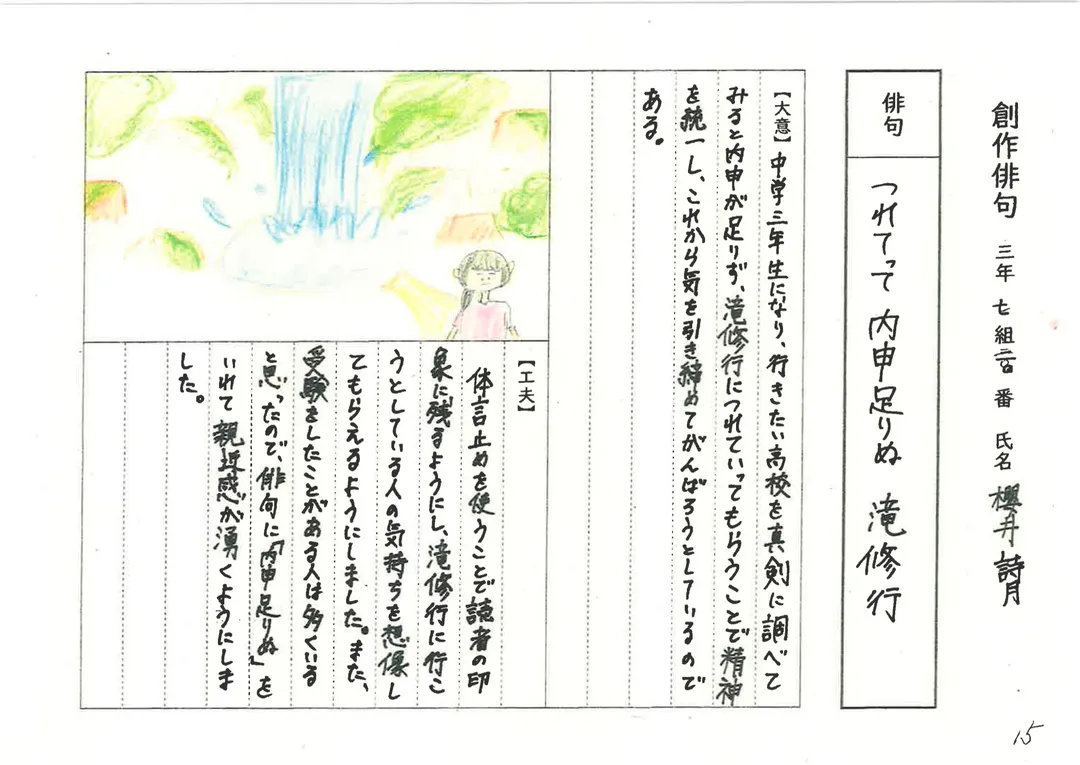 創作俳句 三年 七 組 番 氏名 櫻井 詩月
俳句
つれてって 内申足りぬ 滝修行
【大意】中学三年生になり、行きたい高校を真剣に調べて
みると内申が足りず、滝修行につれていってもらうことで精神
を統一し、これから気を引き締めてがんばろうとしているので
ある。
【工夫】
体言止めを使うことで読者の印
象に残るようにし、滝修行に行こ
うとしている人の気持ちを想像し
てもらえるようにしました。また、
受験をしたことがある人は多くいる
と思ったので、俳句に「内申足りぬ」を
いれて親近感が湧くようにしま
した。
15